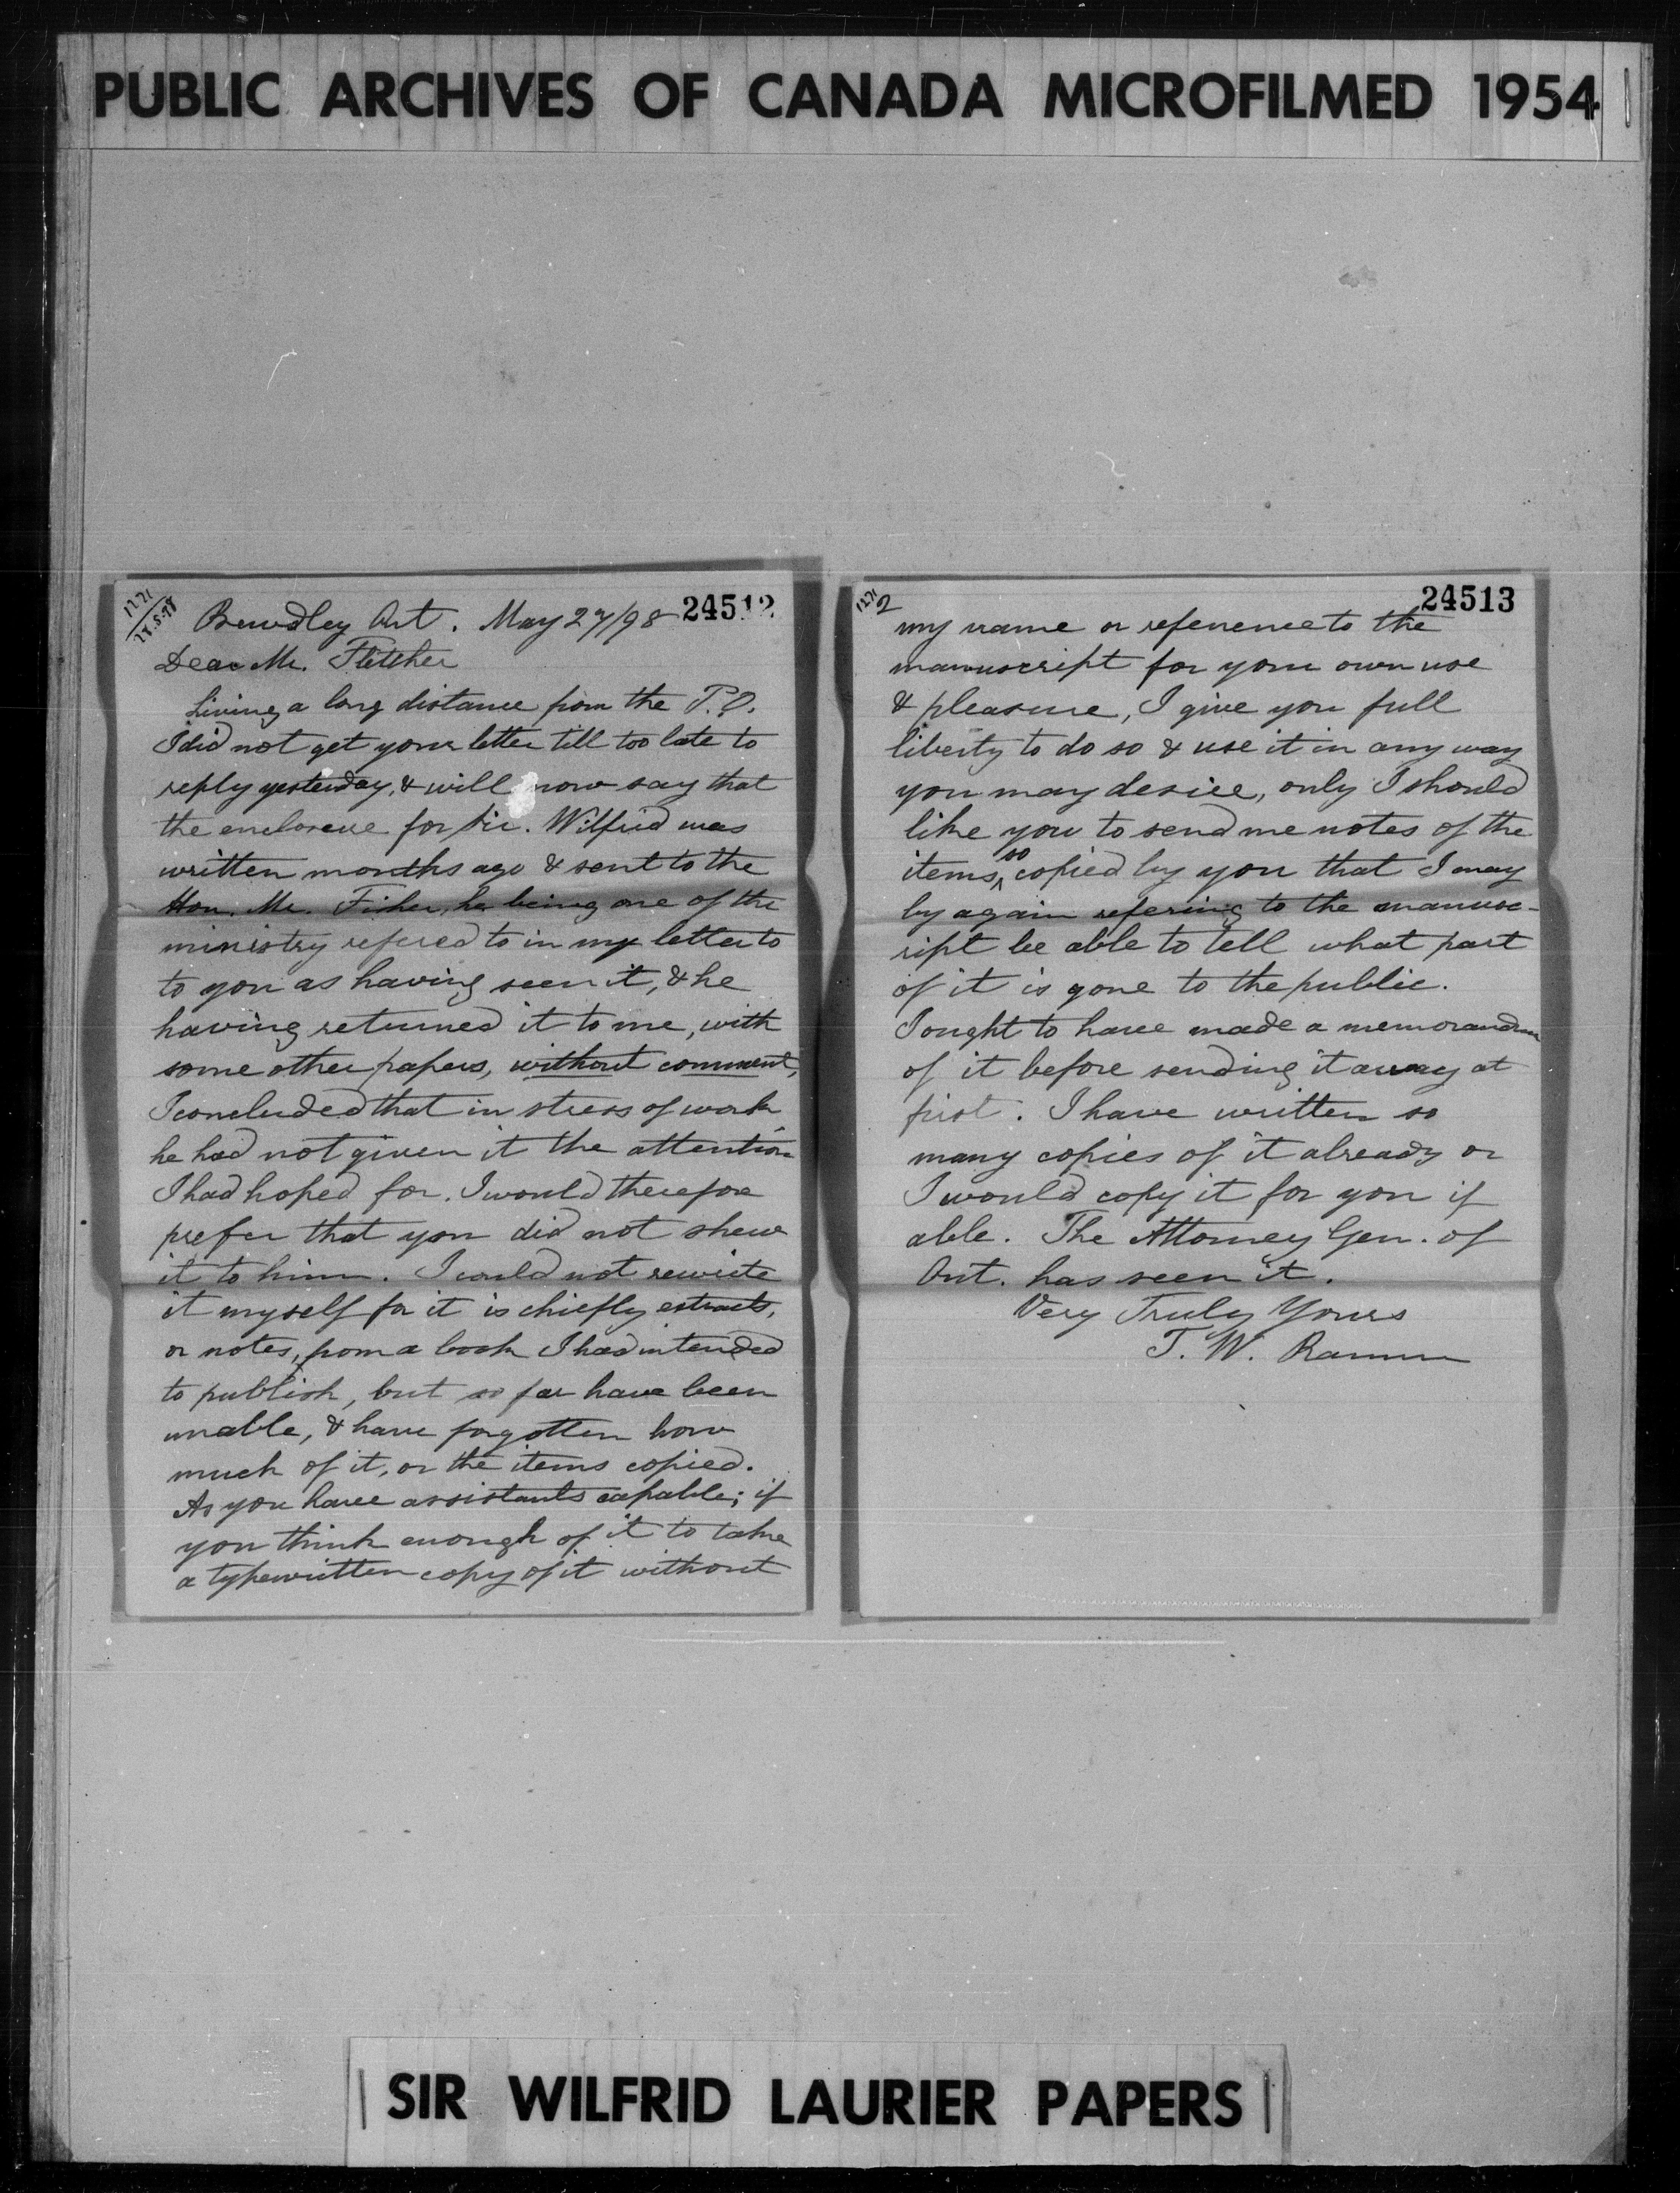 PUBLIC ARCHIVES OF CANADA MICROFILMED 1954
1271
28.5.98
24512
Bewdley Ont. May 27/98
Dear Mr. Fletcher
Living a long distance from the P.O.
I did not get your letter till too late to
reply yesterday, & will now say that
the enclosure for Sir. Wilfrid was
written months ago & sent to the
Hon. Mr. Fisher, he being one of the
ministry refered to in my letter to
to you as having seen it, & he
having returned it to me, with
some other papers, without comment,
I concluded that in stress of work
he had not given it the attention
I had hoped for. I would therefore
prefer that you did not shew
it to him. I could not rewrite
it myself for it is chiefly extracts,
or notes, from a book I had intended
to publish, but so far have been
unable, & have forgotten how
much of it, or the items copied.
As you have assistants capable; if
you think enough of it to take
a typewritten copy of it without
1271
2
24513
my name or reference to the
manuscript for your own use
& pleasure, I give you full
liberty to do so & use it in any way
you may desire, only I should
like you to send me notes of the
items so copied by you that I may
by again refering to the manusc-
ript be able to tell what part
of it is gone to the public.
I ought to have made a memorandum
of it before sending it away at
first. I have written so
many copies of it already or
I would copy it for you if
able. The Attorney Gen. of
Ont. has seen it.
Very Truly Yours
T. W.
SIR WILFRID LAURIER PAPERS